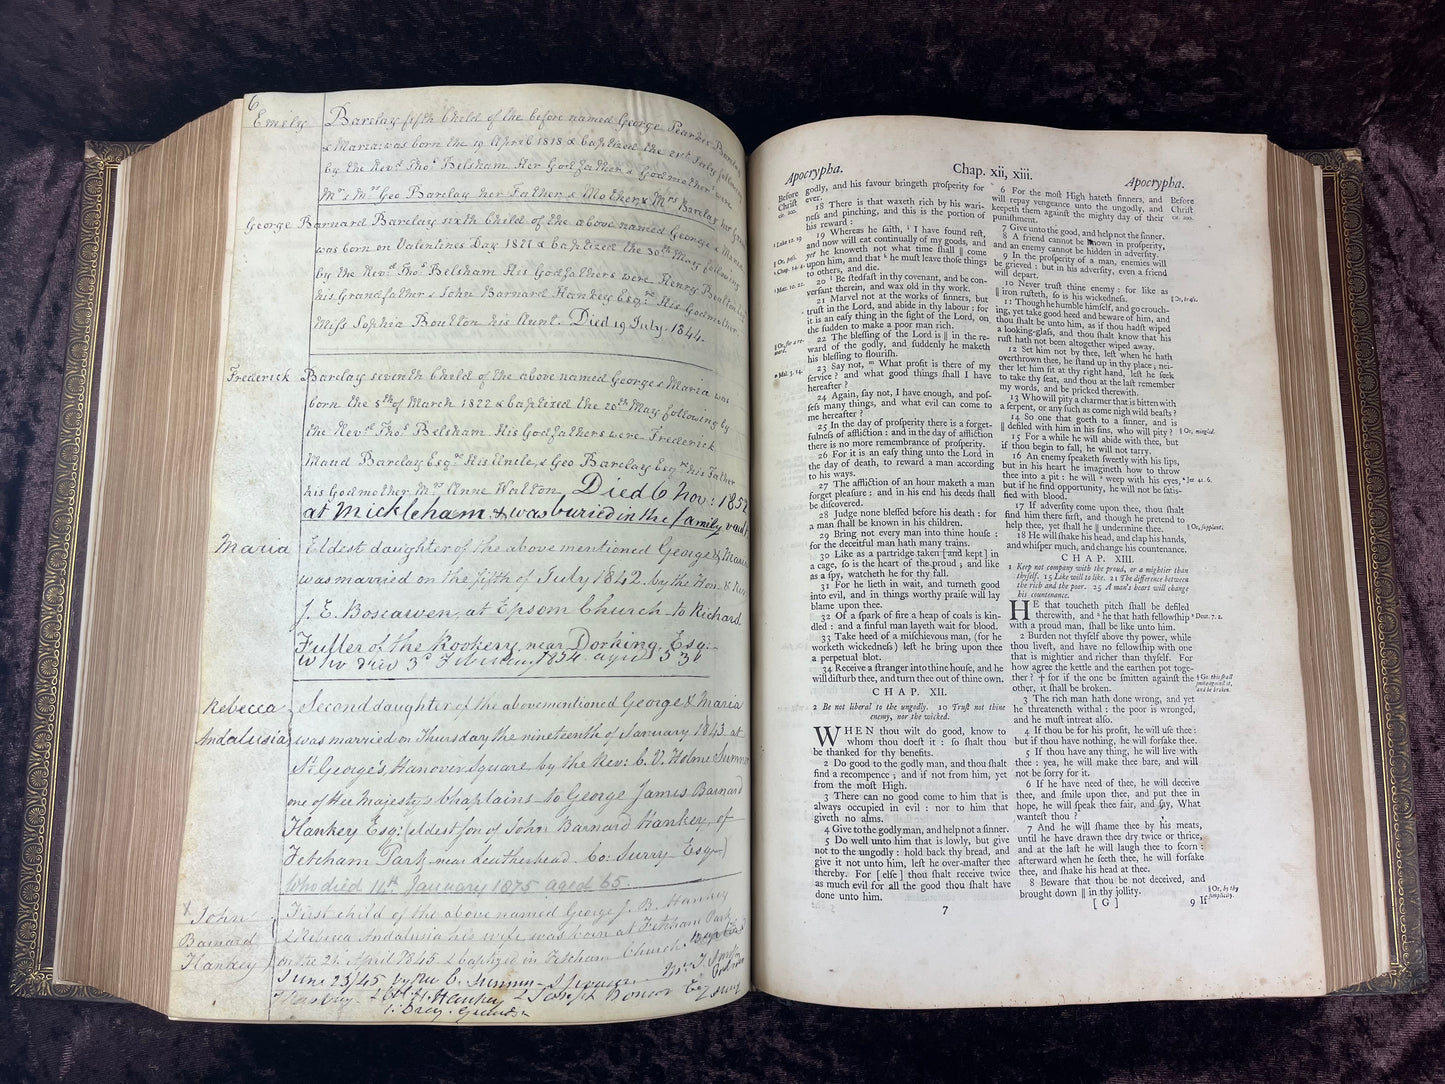 6
Emely Barclay fifth Child of the before named George Pearkes Barclay
& Maria: was born the 19 April 1818 & baptized the 21st July following
by the Revd. Thos. Belsham Her Godfather & Godmother were
Mr. & Mrs. Geo Barclay her Father & Mother & Mrs Barclay her
George Barnard Barclay sixth Child of the above named George & Maria
was born on Valentines Day 1821 & baptized the 30th May following
by the Revd. Thos. Belsham His Godfathers were Henry Boulton Esq
his Grandfather & John Barnard Hankey Esqre. His Godmother
Miss Sophia Boulton his Aunt. Died 19 July. 1844.
Frederick Barclay seventh Child of the above named George & Maria was
born the 8th of March 1822 & baptized the 20th May following by
the Revd. Thos. Belsham His Godfathers were Frederick
Maud Barclay Esqre. His Uncle, & Geo Barclay Esqre. his Father
his Godmother Mrs Anne Walton Died 6 Nov: 1852
at Mickleham & was buried in the family vault
Maria Eldest daughter of the above mentioned George & Maria
was married on the fifth of July 1842. by the Hon. & Rev
J. E. Boscawen, at Epsom Church to Richard
Fuller of the Rookery, near Dorking, Esq:
who died 3d. February 1854 aged 53
Rebecca Second daughter of the abovementioned George & Maria
Andalusia was married on Thursday the nineteenth of January 1843. at
St. George's, Hanover Square, by the Rev: C. V. Holme Sumner
one of Her Majesty's Chaplains to George James Barnard
Hankey Esq: (eldest son of John Barnard Hankey, of
Fetcham Park near Leatherhead. Co: Surry Esq)
Who died 14th January 1875 aged 65
x John First child of the above named George J. B. Hankey
Barnard & Rebecca Andalusia his wife, was born at Fetcham Park
Hankey on the 21. April 1845 & baptized in Fetcham Church
June 23/45 by Rev C. Sumner
Hankey & Joseph Bonsor Esq
Apocrypha.
Chap. xii, xiii.
Apocrypha.
Before
Christ
cir. 200.
godly, and his favour bringeth prosperity for
ever.
18 There is that waxeth rich by his wari-
ness and pinching, and this is the portion of
his reward :
‡ Luke 12. 19
19 Whereas he saith, I have found rest,
and now will eat continually of my goods, and
‖ Or, pass.
yet he knoweth not what time shall ‖ come
upon him, and that he must leave those things
to others, and die.
Mat. 10. 22.
20 Be stedfast in thy covenant, and be con-
versant therein, and wax old in thy work.
21 Marvel not at the works of sinners, but
trust in the Lord, and abide in thy labour : for
it is an easy thing in the sight of the Lord, on
the sudden to make a poor man rich.
‖ Or, for a re-
ward.
22 The blessing of the Lord is ‖ in the re-
ward of the godly, and suddenly he maketh
his blessing to flourish.
Mal. 3. 14.
23 Say not, What profit is there of my
service ? and what good things shall I have
hereafter ?
24 Again, say not, I have enough, and pos-
sess many things, and what evil can come to
me hereafter ?
25 In the day of prosperity there is a forget-
fulness of affliction : and in the day of affliction
there is no more remembrance of prosperity.
26 For it is an easy thing unto the Lord in
the day of death, to reward a man according
to his ways.
27 The affliction of an hour maketh a man
forget pleasure : and in his end his deeds shall
be discovered.
28 Judge none blessed before his death : for
a man shall be known in his children.
29 Bring not every man into thine house :
for the deceitful man hath many trains.
30 Like as a partridge taken [and kept] in
a cage, so is the heart of the proud ; and like
as a spy, watcheth he for thy fall.
31 For he lieth in wait, and turneth good
into evil, and in things worthy praise will lay
blame upon thee.
32 Of a spark of fire a heap of coals is kin-
dled : and a sinful man layeth wait for blood.
33 Take heed of a mischievous man, (for he
worketh wickedness) lest he bring upon thee
a perpetual blot.
34 Receive a stranger into thine house, and he
will disturb thee, and turn thee out of thine own.
CHAP. XII.
2 Be not liberal to the ungodly. 10 Trust not thine
enemy, nor the wicked.
WHEN thou wilt do good, know to
whom thou doest it : so shalt thou
be thanked for thy benefits.
2 Do good to the godly man, and thou shalt
find a recompence ; and if not from him, yet
from the most High.
3 There can no good come to him that is
always occupied in evil : nor to him that
giveth no alms.
4 Give to the godly man, and help not a sinner.
5 Do well unto him that is lowly, but give
not to the ungodly : hold back thy bread, and
give it not unto him, lest he over-master thee
thereby. For [else] thou shalt receive twice
as much evil for all the good thou shalt have
done unto him.
7
6 For the most High hateth sinners, and
will repay vengeance unto the ungodly, and
keepeth them against the mighty day of their
punishment.
Before
Christ
cir. 200.
7 Give unto the good, and help not the sinner.
8 A friend cannot be known in prosperity,
and an enemy cannot be hidden in adversity.
9 In the prosperity of a man, enemies will
be grieved : but in his adversity, even a friend
will depart.
10 Never trust thine enemy : for like as
‖ iron rusteth, so is his wickedness.
‖ Or, brass.
11 Though he humble himself, and go crouch-
ing, yet take good heed and beware of him, and
thou shalt be unto him, as if thou hadst wiped
a looking-glass, and thou shalt know that his
rust hath not been altogether wiped away.
12 Set him not by thee, lest when he hath
overthrown thee, he stand up in thy place ; nei-
ther let him sit at thy right hand, lest he seek
to take thy seat, and thou at the last remember
my words, and be pricked therewith.
13 Who will pity a charmer that is bitten with
a serpent, or any such as come nigh wild beasts ?
14 So one that goeth to a sinner, and is
‖ defiled with him in his sins, who will pity ?
‖ Or, mingled.
15 For a while he will abide with thee, but
if thou begin to fall, he will not tarry.
16 An enemy speaketh sweetly with his lips,
but in his heart he imagineth how to throw
thee into a pit : he will weep with his eyes,
Jer. 41. 6.
but if he find opportunity, he will not be satis-
fied with blood.
17 If adversity come upon thee, thou shalt
find him there first, and though he pretend to
help thee, yet shall he ‖ undermine thee.
‖ Or, supplant.
18 He will shake his head, and clap his hands,
and whisper much, and change his countenance.
CHAP. XIII.
1 Keep not company with the proud, or a mightier than
thyself. 15 Like will to like. 21 The difference between
the rich and the poor. 25 A man's heart will change
his countenance.
HE that toucheth pitch shall be defiled
therewith, and he that hath fellowship
Deut. 7. 2.
with a proud man, shall be like unto him.
2 Burden not thyself above thy power, while
thou livest, and have no fellowship with one
that is mightier and richer than thyself. For
how agree the kettle and the earthen pot toge-
ther ? † for if the one be smitten against the
other, it shall be broken.
† Gr. this shall
smite against it,
and be broken.
3 The rich man hath done wrong, and yet
he threateneth withal : the poor is wronged,
and he must intreat also.
4 If thou be for his profit, he will use thee :
but if thou have nothing, he will forsake thee.
5 If thou have any thing, he will live with
thee : yea, he will make thee bare, and will
not be sorry for it.
6 If he have need of thee, he will deceive
thee, and smile upon thee, and put thee in
hope, he will speak thee fair, and say, What
wantest thou ?
7 And he will shame thee by his meats,
until he have drawn thee dry twice or thrice,
and at the last he will laugh thee to scorn :
afterward when he seeth thee, he will forsake
thee, and shake his head at thee.
8 Beware that thou be not deceived, and
brought down ‖ in thy jollity.
‖ Or, by thy
simplicity.
[ G ]
9 If